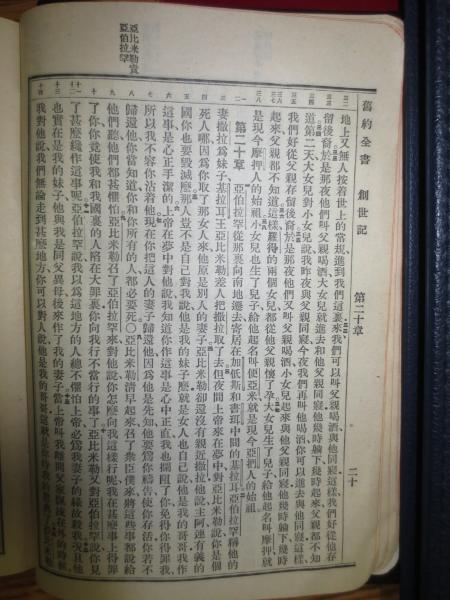 舊約全書 創世記 第二十章 二十
地上又無人按着世上的常規進到我們這裏來我們可以叫父親喝酒與他同寢這樣我們好從他存
留後裔於是那夜他們叫父親喝酒大女兒就進去和他父親同寢他幾時躺下幾時起來父親都不知
道第二天大女兒對小女兒說我昨夜與父親同寢今夜我們再叫他喝酒你可以進去與他同寢這樣
我們好從父親存留後裔於是那夜他們又叫父親喝酒小女兒起來與他父親同寢他幾時躺下幾時
起來父親都不知道這樣羅得的兩個女兒都從他父親懷了孕大女兒生了兒子給他起名叫摩押就
是現今摩押人的始祖小女兒也生了兒子給他起名叫便亞米就是現今亞捫人的始祖
第二十章 亞伯拉罕從那裏向南地遷去寄居在加低斯和書珥中間的基拉耳亞伯拉罕稱他的
妻撒拉爲妹子基拉耳王亞比米勒差人把撒拉取了去但夜間上帝來在夢中對亞比米勒說你是個
死人哪因爲你取了那女人來他原是別人的妻子亞比米勒卻還沒有親近撒拉他說主阿連有義的
國你也要毀滅麽那人豈不是自己對我說他是我的妹子麽就是女人也自己說他是我的哥哥我作
這事是心正手潔的上帝在夢中對他說我知道你作這事是心中正直我也攔阻了你免得你得罪我
所以我不容你沾着他現在你把這人的妻子歸還他因爲他是先知他要爲你禱告使你存活你若不
歸還他你當知道你和你所有的人都必要死〇亞比米勒清早起來召了衆臣僕來將這些事都說給
他們聽他們都甚懼怕亞比米勒召了亞伯拉罕來對他說你怎麽向我這樣行呢我在甚麽事上得罪
了你你竟使我和我國裏的人陷在大罪裏你向我行不當行的事了亞比米勒又對亞伯拉罕說你見
了甚麽纔作這事呢亞伯拉罕說我以爲這地方的人總不懼怕上帝必爲我妻子的緣故殺我況且他
也實在是我的妹子他與我是同父異母後來作了我的妻子當上帝叫我離開父家飄流在外的時候
我對他說我們無論走到甚麽地方你可以對人說他是我的哥哥這就是你待我的恩典了
亞比米勒責
亞伯拉罕